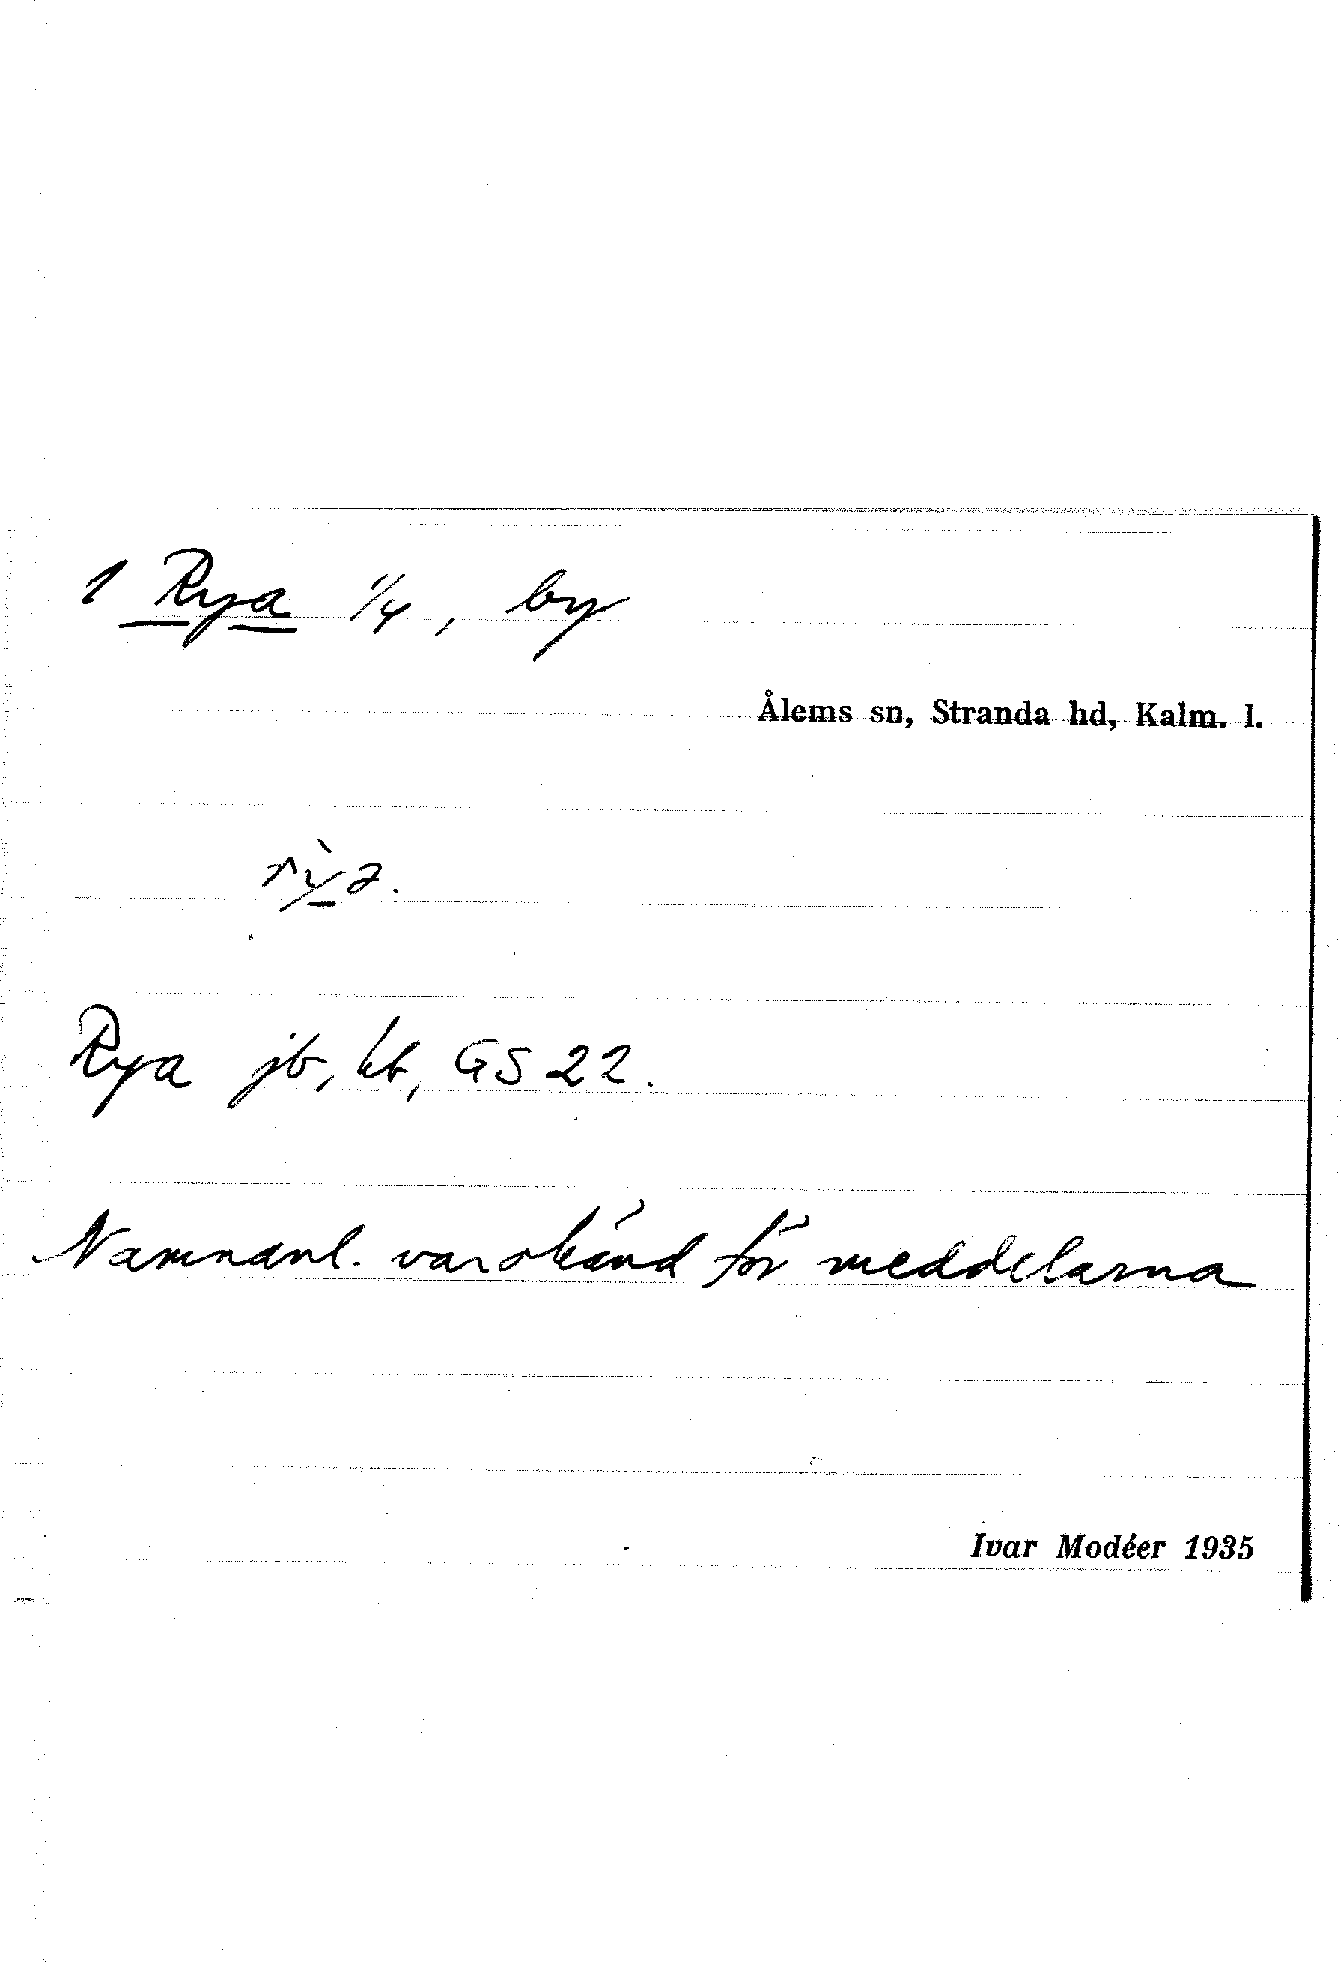 1 Rya 1/4, by
Ålems sn, Stranda hd, Kalm. l.
Rya jb, kb, GS 22.
Namnanl. var okänd för meddelarna
Ivar Modéer 1935